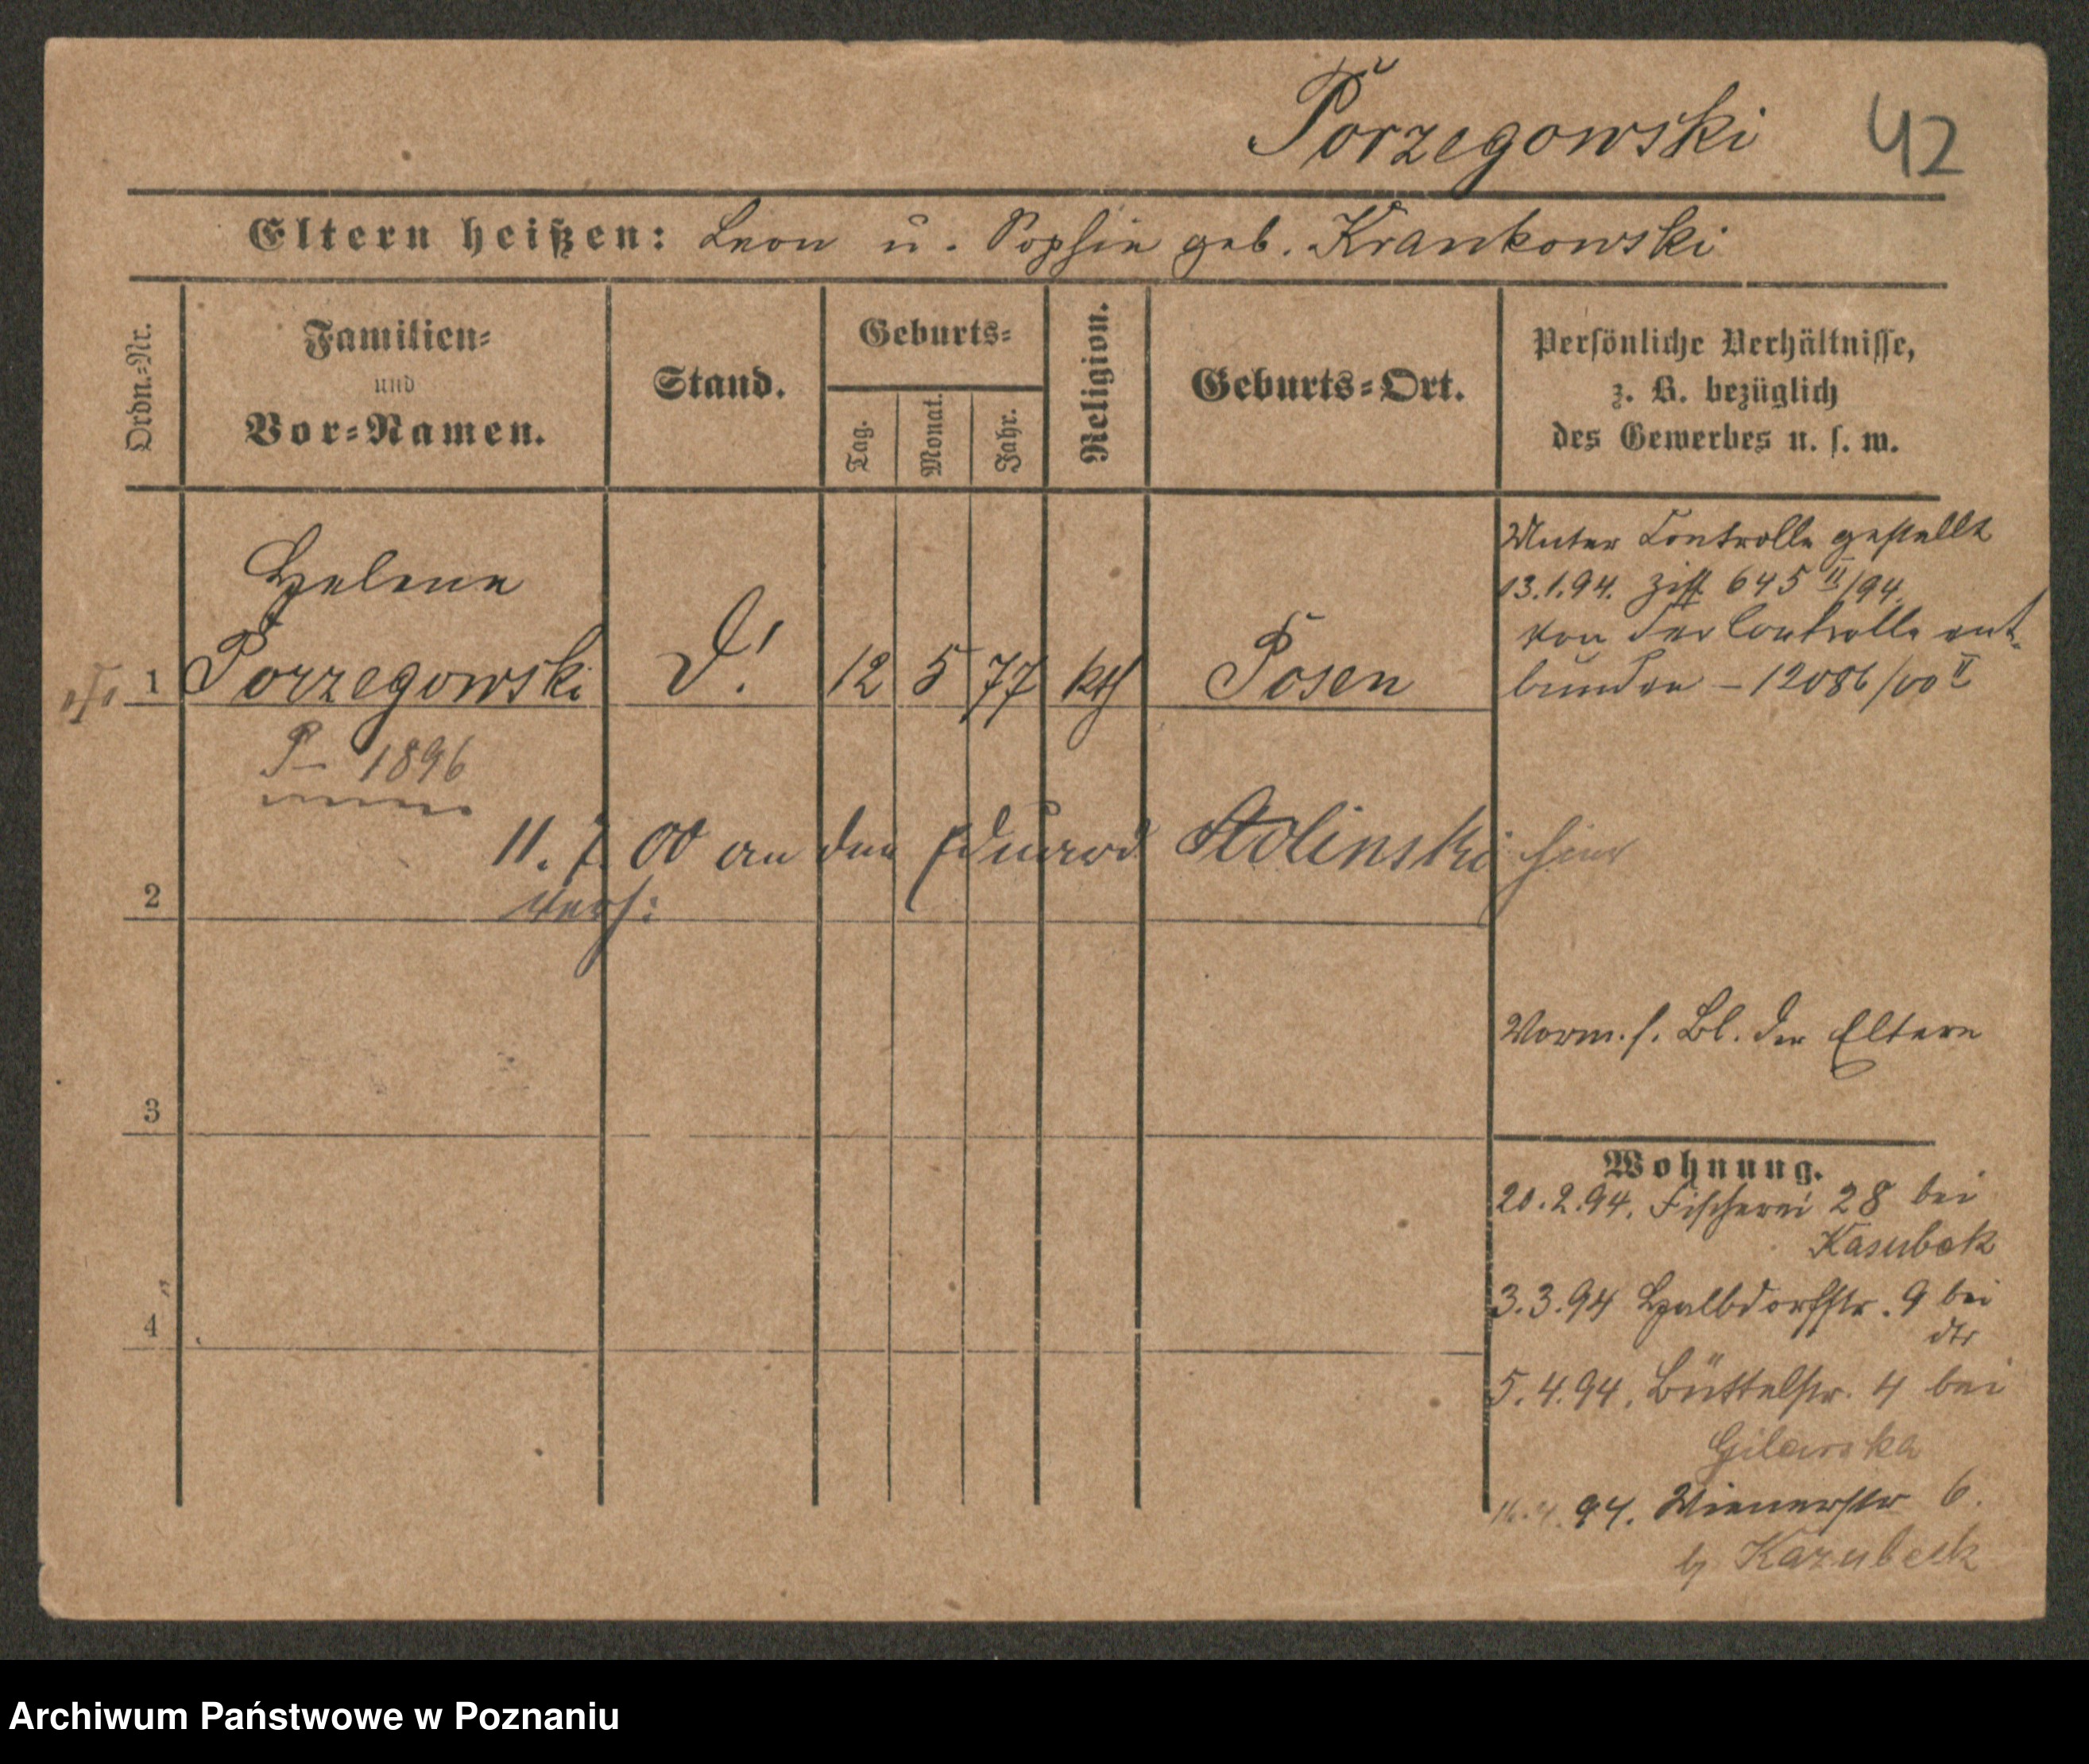 Porzegowski 42
Eltern heißen: Leon u. Sophie geb. Krankowski
Ordn.-Nr.
Familien-
und
Vor-Namen.
Stand.
Geburts-
Tag.
Monat.
Jahr.
Religion.
Geburts-Ort.
Persönliche Verhältnisse,
z. B. bezüglich
des Gewerbes u. s. w.
Helene
1 Porzegowski D! 12 5 77 kth Posen
Unter Controlle gestellt
13.1.94. 645 II/94.
von der Controlle ent-
bunden – 12086/00 II
P– 1896
11. 7. 00 an den Eduard Stolinski hier
2 verh:
Vorm. s. Bl. der Eltern
3
Wohnung.
20.2.94. Fischerei 28 bei
Kasubek
3.3.94 Halbdorfstr. 9 bei
dts
4
5.4.94. Büttelstr. 4 bei
Gilarska
94. Wienerstr 6.
b/ Kazubeck
Archiwum Państwowe w Poznaniu